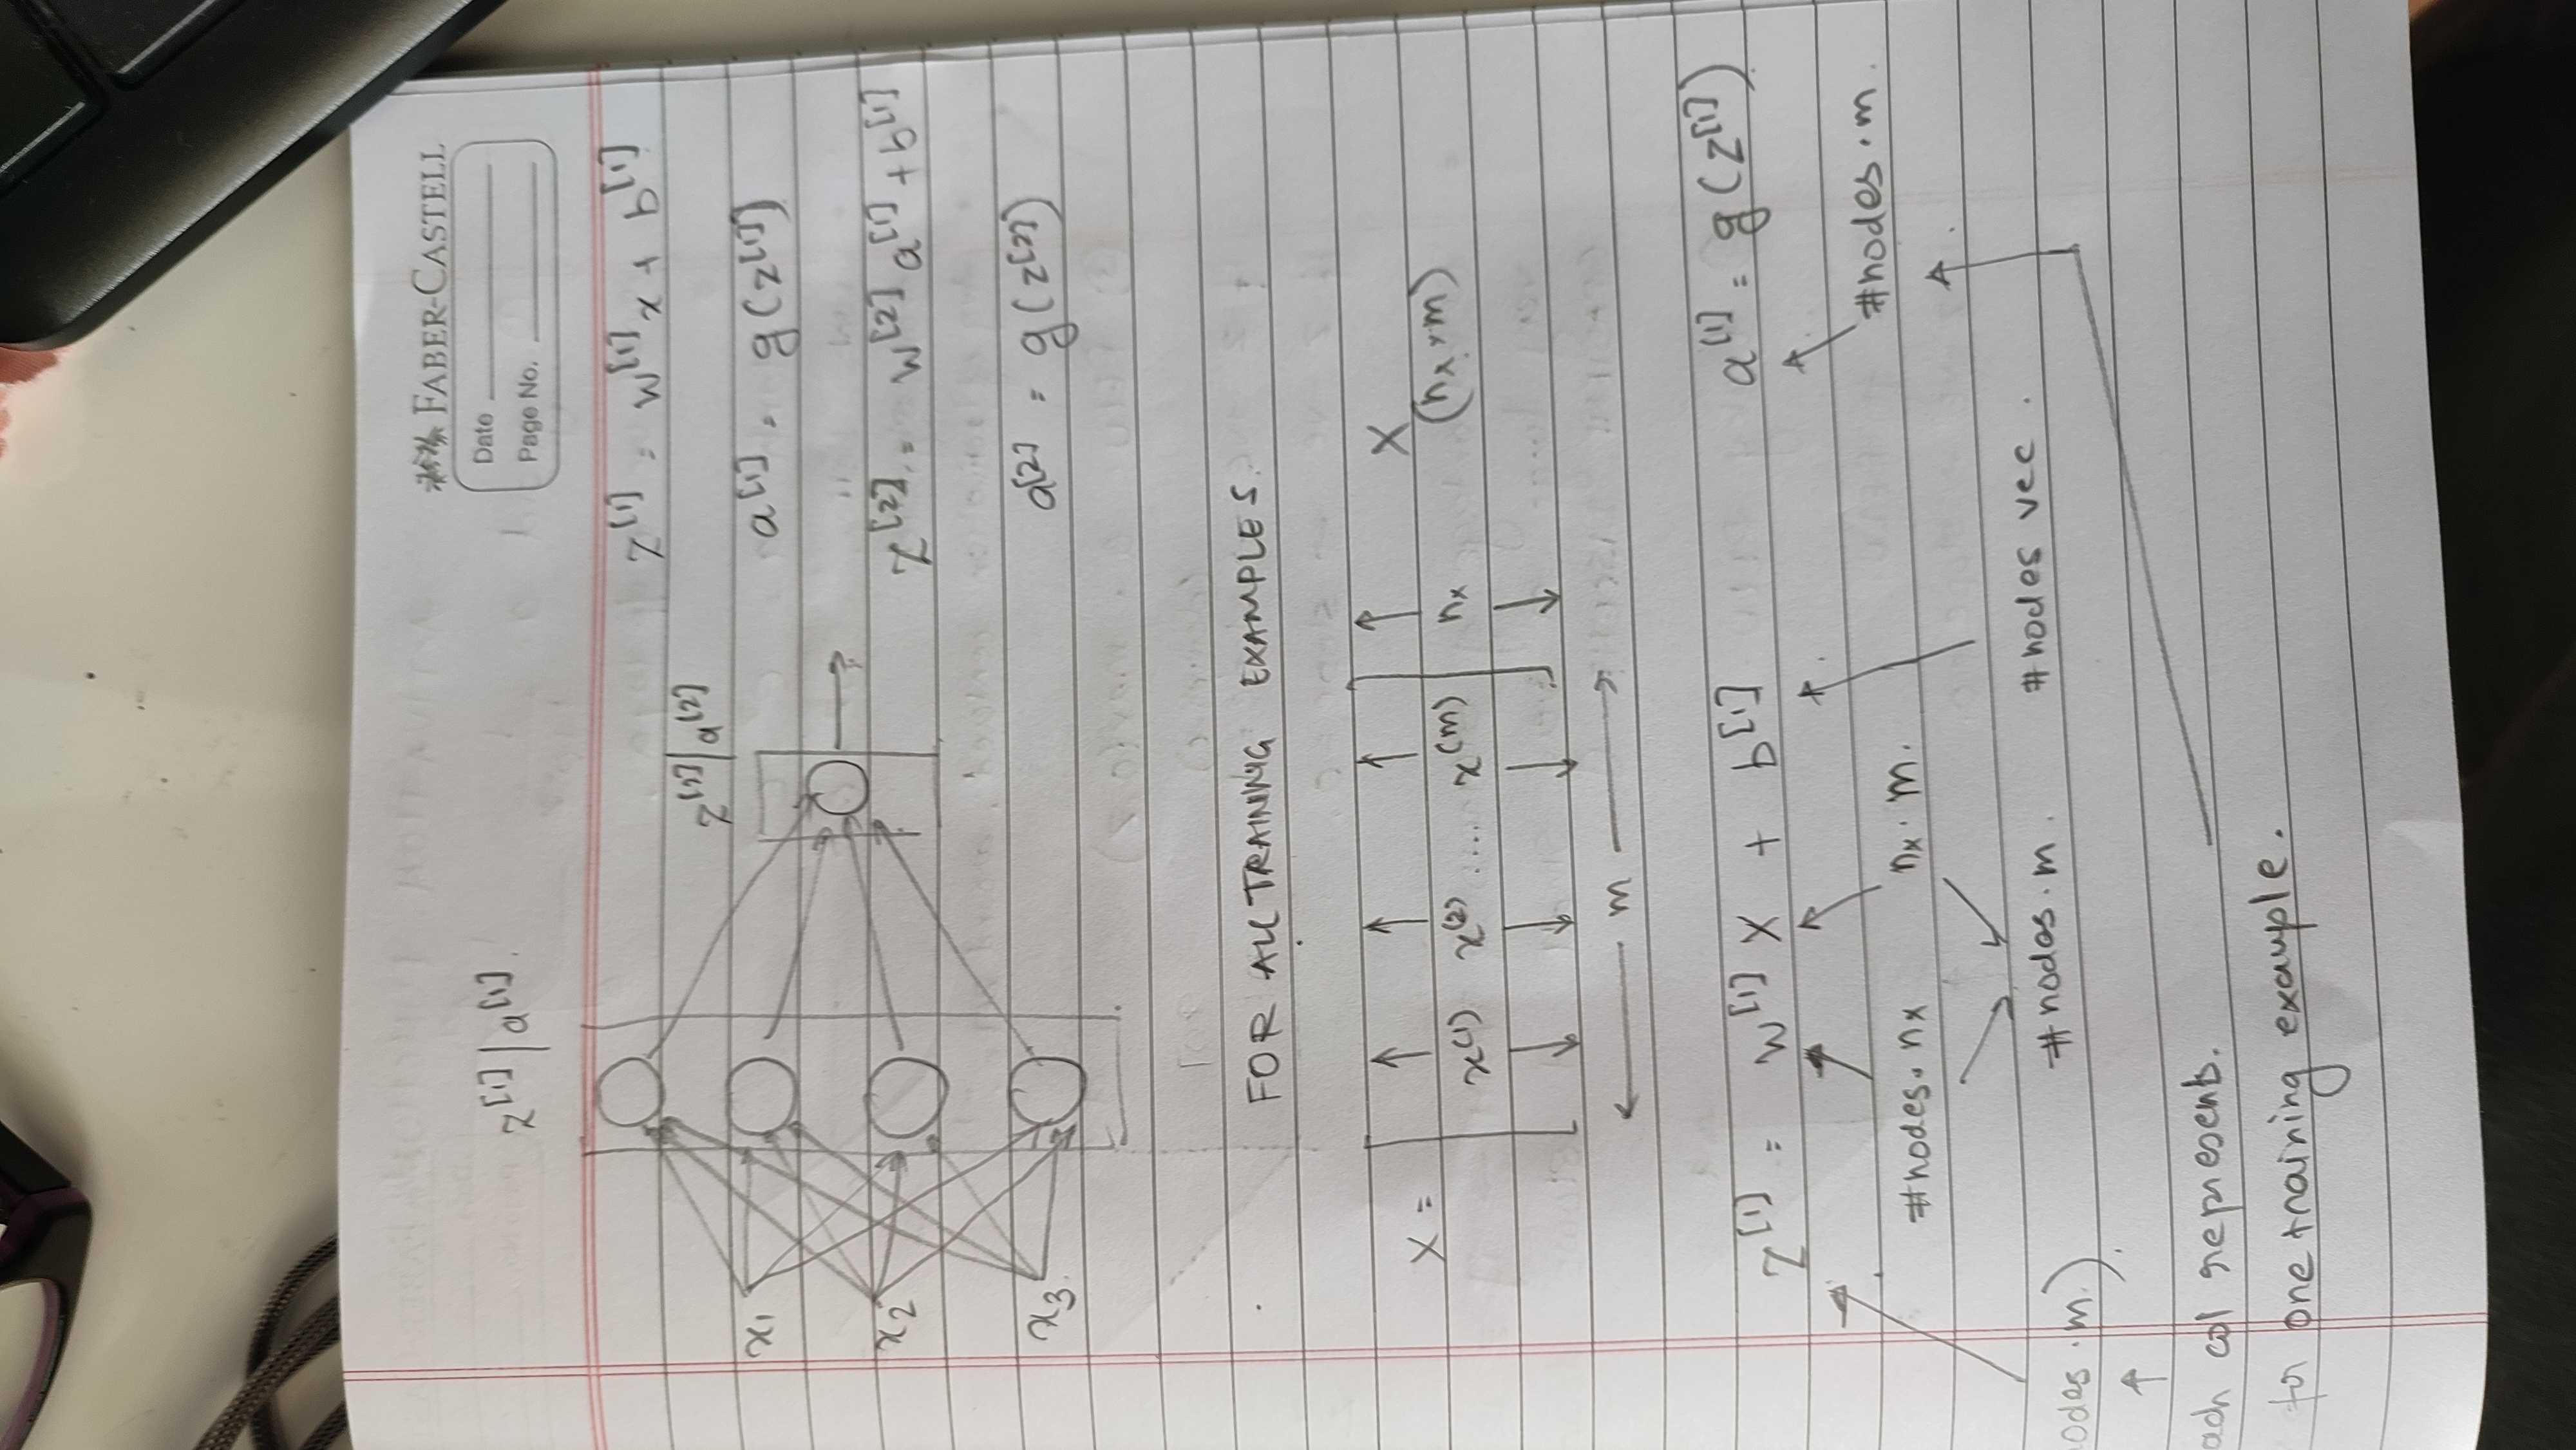 FABER-CASTELL
Date
Page No.
z[1] | a[1].
z[2] | a[2]
x1
x2
x3.
z[1] = w[1] x + b[1]
a[1] = g(z[1])
z[2] = w[2] a[1] + b[1]
a[2] = g(z[2])
FOR ALL TRAINING EXAMPLES.
X = [ x(1) x(2) .... x(m) ] nx X
(nx × m)
← m →
Z[1] = W[1] X + b[1] a[1] = g(Z[1])
#nodes · m.
#nodes · nx nx · m.
#nodes · m. #nodes vec.
odes · m.).
ach col represents.
for one training example.